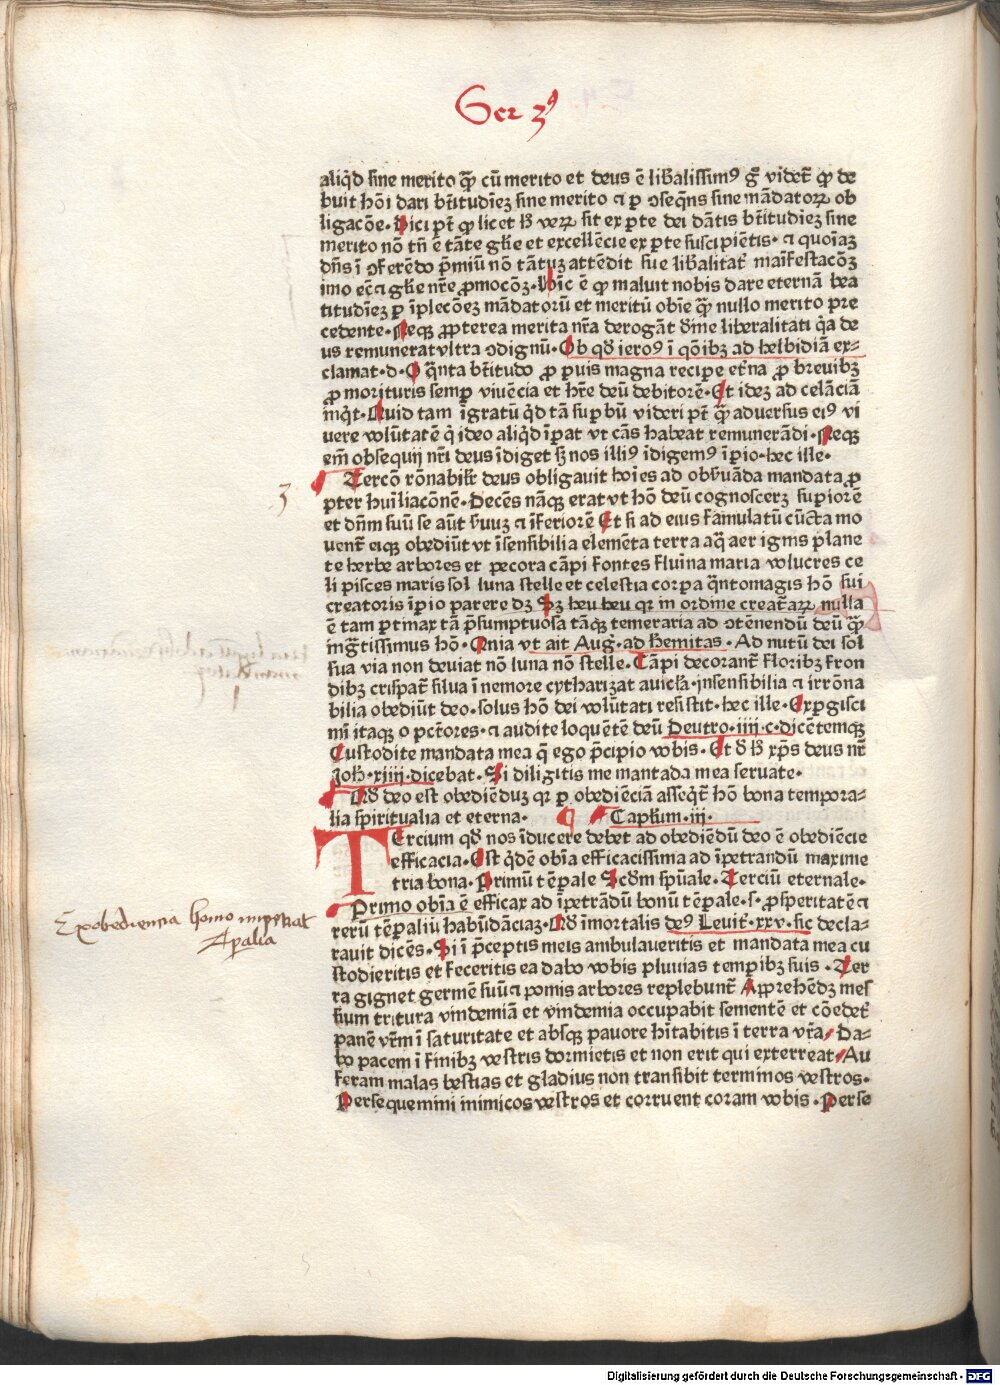 Ser 3ꝰ
aliq̇d sine merito q̃ꝫ cū merito et deus ē lib̃alissimꝰ g̃ videt᷑ ꝙ de
buit hōi dari b̃titudīeꝫ sine merito ⁊ ꝑ ꝯseq̃ns sine mādatoꝝ ob
ligacōe· Dici pt̃ ꝙ licet h̃ veꝝ sit ex ꝑte dei dātis b̃titudīeꝫ sine
merito nō tn̄ ē tāte gl̃ie et excellēcie ex ꝑte suscipiētis· ⁊ quoīaꝫ
dñs ī ꝯferēdo p̄miū nō tātuꝫ attēdit sue lib̃alitat᷑ maīfestacōꝫ
imo ecā gl̃ie nr̃e ꝓmocōꝫ· Hīc ē ꝙ maluit nobis dare eternā bea
titudīeꝫ ꝑ īplecōeꝫ mādatorū et meritū obīe q̃ꝫ nullo merito pre
cedente· Neqꝫ ꝓpterea merita nr̃a derogāt dīne liberalitati q̇a de
us remunerat vltra ꝯdignū· Ob qd̃ ieroꝰ ī q̄oībꝫ ad helbidiā ex-
clamat·d· O q̃nta b̃titudo ꝓ ꝑuis magna recipe et̃na ꝓ breuibꝫ
ꝓ morituris semꝑ viuēcia et hr̃e deū debitorē· Et ideꝫ ad celāciā
inq̇t· Quid tam īgratū q̇d tā suꝑbū videri pt̃ q̃ꝫ aduersus eiꝰ vi
uere volūtatē q̇ ideo aliq̇d īꝑat vt cās habeat remunerādi· Neqꝫ
em̄ obsequij nr̃i deus īdiget sꝫ nos illiꝰ īdigemꝰ īꝑio· hec ille·
3
Tercō rōnabilr̃ deus obligauit hoīes ad obꝰuāda mandata ꝓ
pter hūiliacōnē· Decēs nāqꝫ erat vt hō deū cognosceꝝ suꝑiorē
et dñm suū se aūt ẜuuꝫ ⁊ īferiorē Et si ad eius famulatū cūcta mo
uent᷑ eiqꝫ obediūt vt īsensibilia elemēta terra aq̃ aer ignis plane
te herbe arbores et pecora cāpi fontes fluīna maria volucres ce
li pisces maris sol luna stelle et celestia corꝑa q̃ntomagis hō sui
creatoris īꝑio parere dꝫ Sꝫ heu heu qꝛ in ordine creat᷑aꝝ nulla
ē tam ꝑtinax tā p̄sumptuosa tāqꝫ temeraria ad ꝯtēnendū deū q̃ꝫ
ingr̃tissimus hō· Qnia vt ait Aug·ad hemitas· Ad nutū dei sol
sua via non deuiat nō luna nō stelle· Cāpi decorant᷑ floribꝫ fron
dibꝫ crispat᷑ silua ī nemore cytharizat auicl̃a· insensibilia ⁊ irrōna
bilia obediūt deo· solus hō dei volūtati resistit· hec ille· Exꝑgisci
mī itaqꝫ o pctōres· ⁊ audite loquētē deū Deutro·iiii·c·dicētemqꝫ
Custodite mandata mea q̄ ego p̄cipio vobis· Et d̃ h̃ xp̄s deus nr̃
Joh̃·xiiii·dicebat· Si diligitis me mantada mea seruate·
Qd̃ deo est obediēduꝫ qꝛ ꝑ obediēciā asseq̇t᷑ hō bona tempora-
lia spiritualia et eterna· Capl̃um·iii·
TErcium qd̃ nos īducere debet ad obediēdū deo ē obediēcie
efficacia· Est q̇dē obīa efficacissima ad īpetrandū maxime
tria bona· Primū tēꝑale Scd̃m sp̃uale· Terciū eternale·
Primo obīa ē efficax ad īpetrādū bonū tēꝑale·s·ꝓsperitatē ⁊
Exobediencia homo imperat
Tꝑalia
rerū tēꝑaliū habūdāciaꝫ· Qd̃ īmortalis deꝰ Leuit᷑·xxv·sic decla-
rauit dicēs· Si ī p̄ceptis meis ambulaueritis et mandata mea cu
stodieritis et feceritis ea dabo vobis pluuias temꝑibꝫ suis· Ter
ra gignet germē suū ⁊ pomis arbores replebunt᷑ Apprehēdꝫ mes
sium tritura vindemiā et vindemia occupabit sementē et cōedet᷑
panē vr̃m ī saturitate et absqꝫ pauore hītabitis ī terra vr̃a· Da-
bo pacem ī finibꝫ vestris dormietis et non erit qui exterreat· Au
feram malas bestias et gladius non transibit terminos vestros·
Persequemini inimicos vestros et corruent coram vobis· Perse
Digitalisierung gefördert durch die Deutsche Forschungsgemeinschaft - DFG